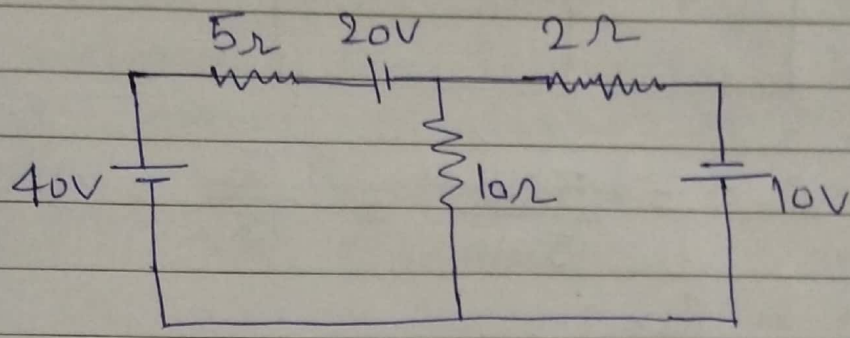 5Ω 20V 2Ω
40V 10Ω 10V